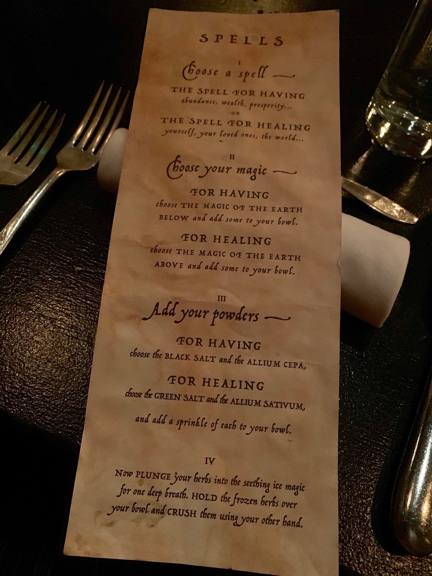 SPELLS
I
Choose a spell
THE SPELL FOR HAVING
abundance, wealth, prosperity...
OR
THE SPELL FOR HEALING
yourself, your loved ones, the world...
II
Choose your magic
FOR HAVING
choose THE MAGIC OF THE EARTH
BELOW and add some to your bowl.
FOR HEALING
choose THE MAGIC OF THE EARTH
ABOVE and add some to your bowl.
III
Add your powders
FOR HAVING
choose the BLACK SALT and the ALLIUM CEPA,
FOR HEALING
choose the GREEN SALT and the ALLIUM SATIVUM,
and add a sprinkle of each to your bowl.
IV
Now PLUNGE your herbs into the seething ice magic
for one deep breath. HOLD the frozen herbs over
your bowl and CRUSH them using your other hand.